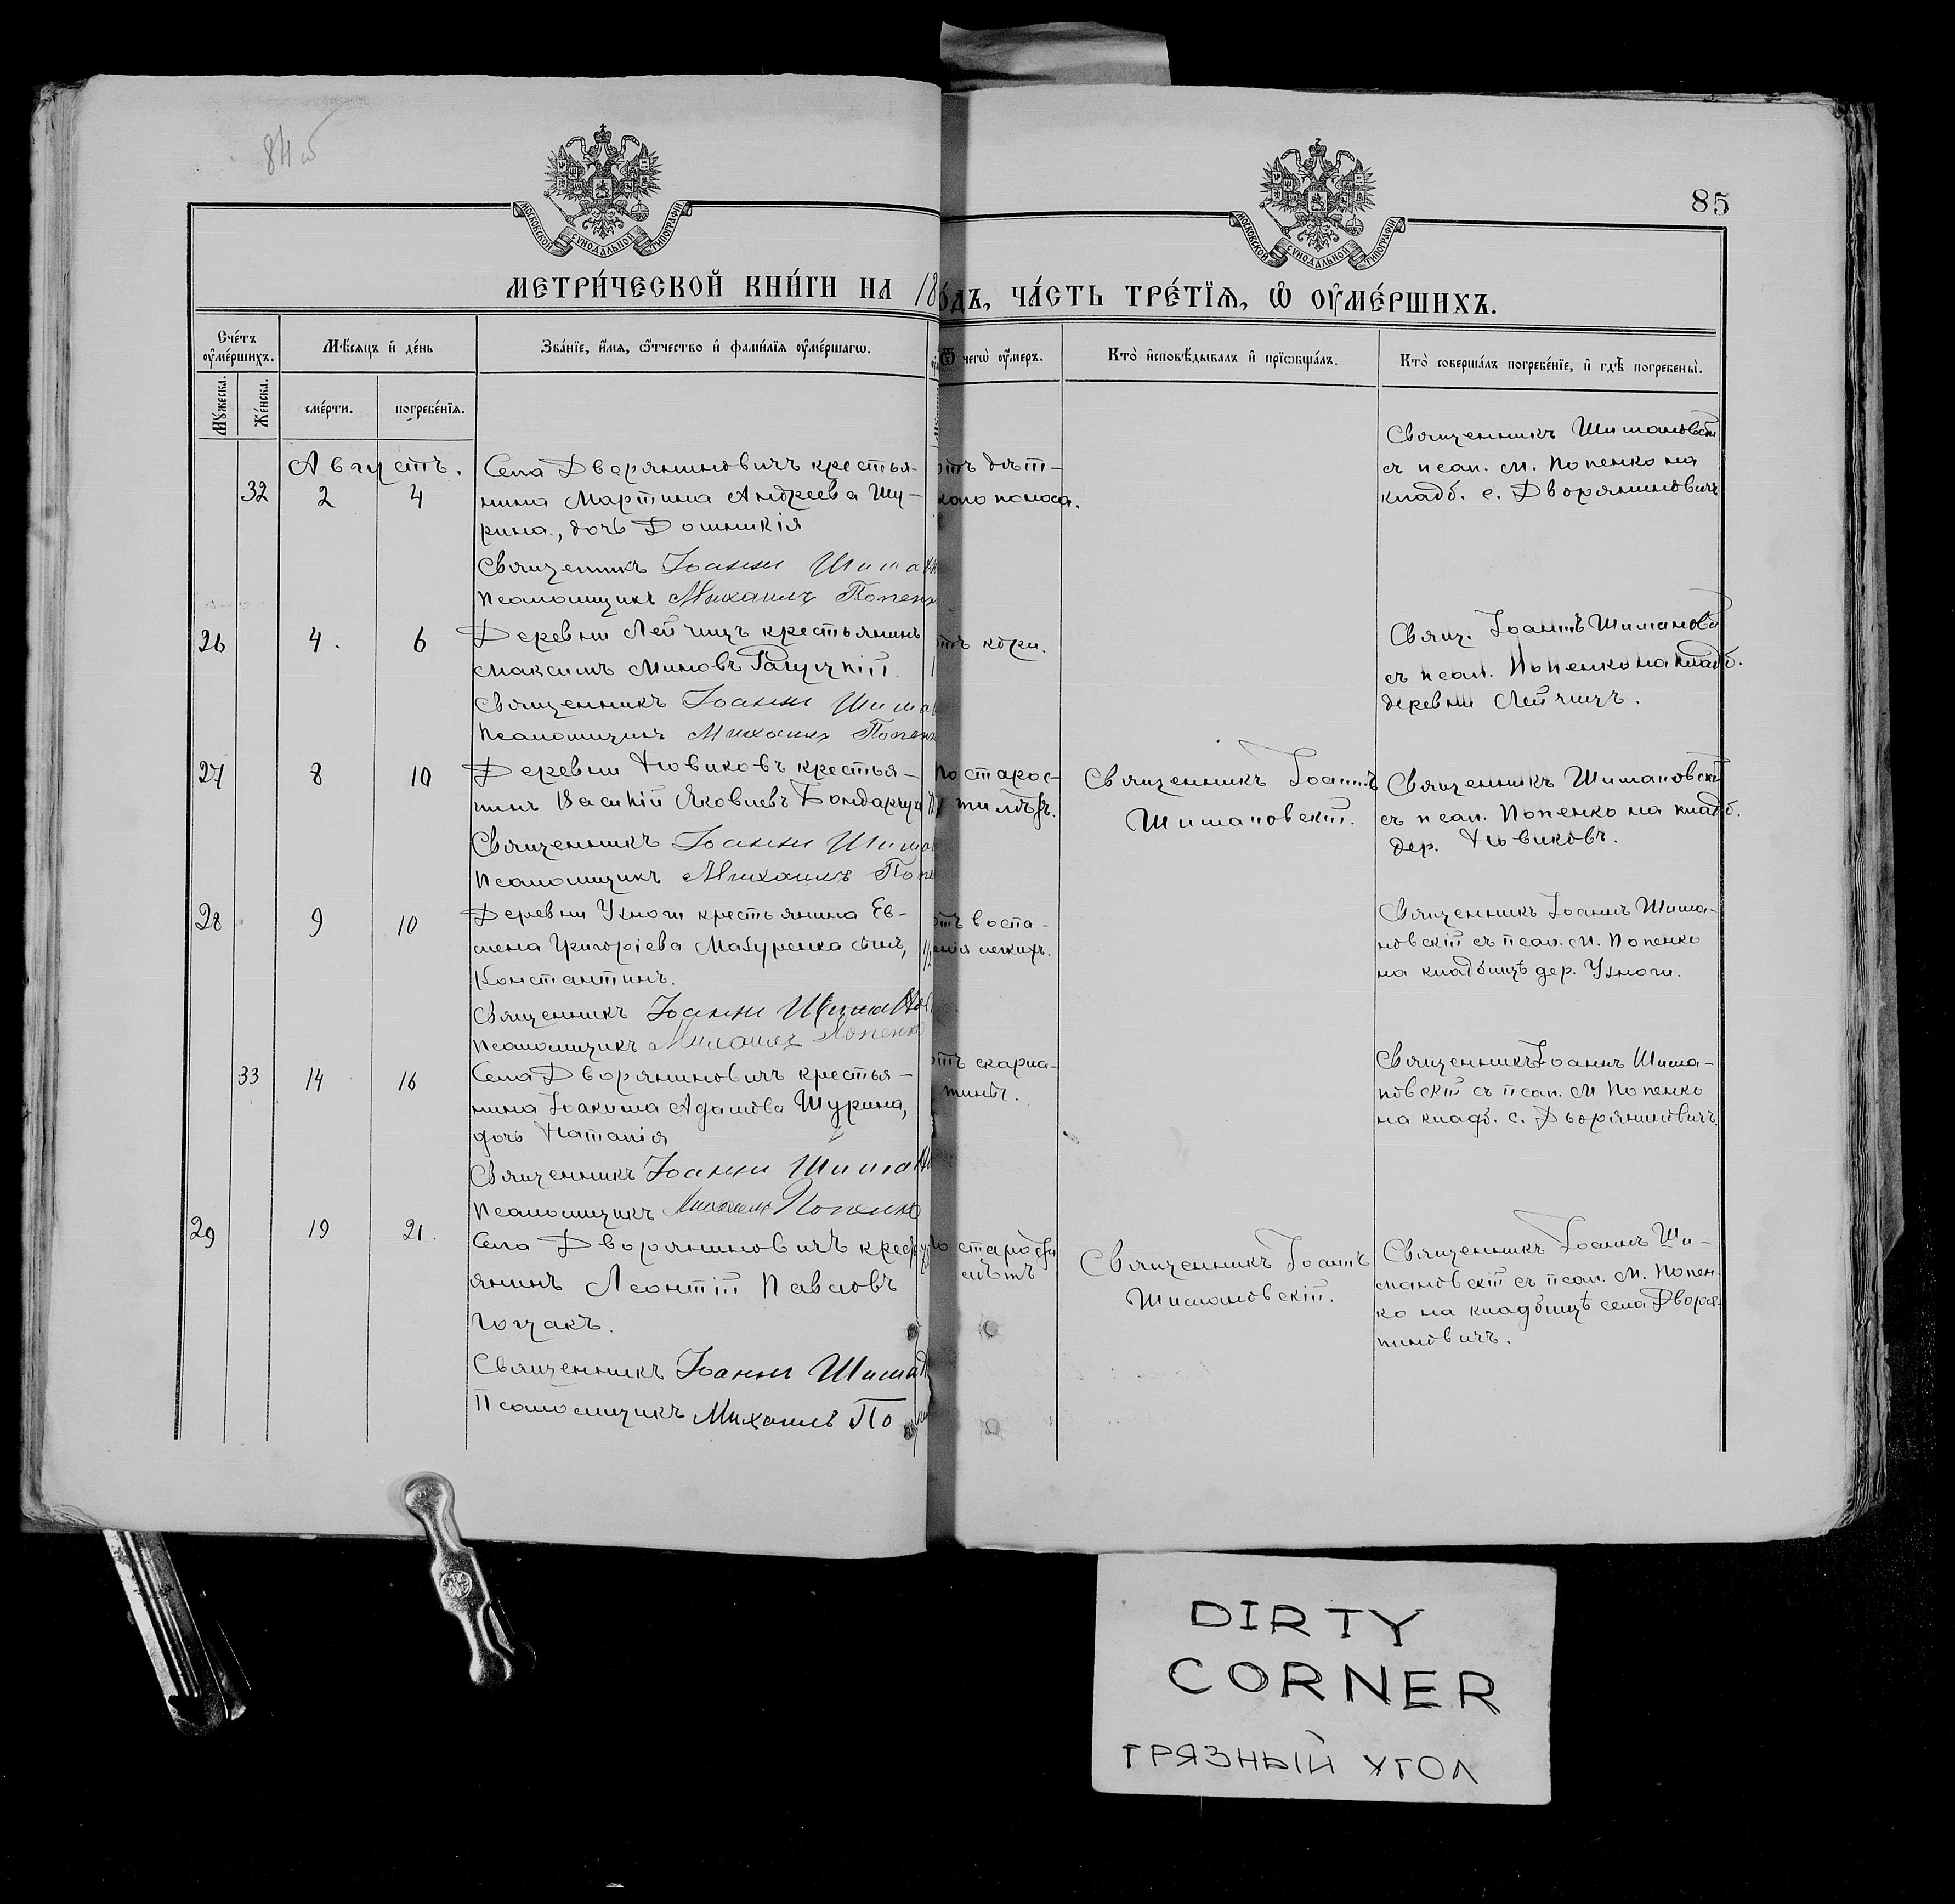 84 об
85
МОСКОВСКОЙ СѴНОДАЛЬНОЙ ТИПОГРАФІИ
МОСКОВСКОЙ СѴНОДАЛЬНОЙ ТИПОГРАФІИ
МЕТРИ́ЧЕСКОЙ КНИ́ГИ НА 18
о́дъ, ЧА́СТЬ ТРЕ́ТЇѦ, Ѡ҆ ОУ҆МЕ́РШИХЪ.
Сче́тъ оу҆ме́ршихъ.
Мѣ́сяцъ и҆ де́нь
Зва́нїе, и҆́мѧ, ѻ҆́тчество и҆ фами́лїѧ оу҆ме́ршагѡ.
Ѿ чегѡ̀ оу҆́меръ.
Кто̀ и҆сповѣ́дывалъ и҆ прїѡбща́лъ.
Кто̀ соверша́лъ погребе́нїе, и҆ гдѣ̀ погребены̀.
Му́жеска.
Же́нска.
сме́рти.
погребе́нїѧ.
Августъ.
32 2 4
Села Дворяниновичъ крестья-
нина Мартина Андреева Щу-
рина, дочь
Священникъ Іоаннъ Шима
Псаломщикъ Михаилъ Попенк
отъ дѣт-
скаго поноса.
Священникъ Шимановскій
съ псал. М. Попенко на
кладб. с. Дворяниновичъ
26 4. 6
Деревни Лейчицъ крестьянинъ
Максимъ Миновъ
Священникъ Іоаннъ Шима
Псаломщикъ Михаилъ Попенк
отъ кори.
Свящ. Іоаннъ Шимановскій
съ псал. Попенко на кладб.
деревни Лейчицъ.
27 8 10
Деревни Новиковъ крестья-
нинъ Василій Яковлевъ Бондарчукъ
Священникъ Іоаннъ Шима
Псаломщикъ Михаилъ Попе
По старос-
ти лѣтъ.
Священникъ Іоаннъ
Шимановскій.
Священникъ Шимановскій
съ псал. Попенко на кладб.
дер. Новиковъ.
28 9 10
Деревни Узноги крестьянина Ев-
Григоріева Мазуренка сынъ,
Константинъ.
Священникъ Іоаннъ Шиманов
Псаломщикъ Михаилъ Попенко
1/2
отъ воспа-
ленія легкихъ.
Священникъ Іоаннъ Шима-
новскій съ псал. М. Попенко
на кладбищѣ дер. Узноги.
33 14 16
Села Дворяниновичъ крестья-
нина Іоакима Адамова Щурина,
дочь Наталія
Священникъ Іоаннъ Шиман
Псаломщикъ Михаилъ Попенко
отъ скарла-
тины.
Священникъ Іоаннъ Шима-
новскій съ псал. М Попенко
на кладб. с. Дворяниновичъ.
29 19 21.
Села Дворяниновичъ кресть
янинъ Леонтій Павловъ
Священникъ Іоаннъ Шиман
Псаломщикъ Михаилъ По
По старости
лѣтъ
Священникъ Іоаннъ
Шимановскій.
Священникъ Іоаннъ Ши-
мановскій съ псал. М. Попен-
ко на кладбищѣ села Дворя-
ниновичъ.
DIRTY
CORNER
ГРЯЗНЫЙ УГОЛ